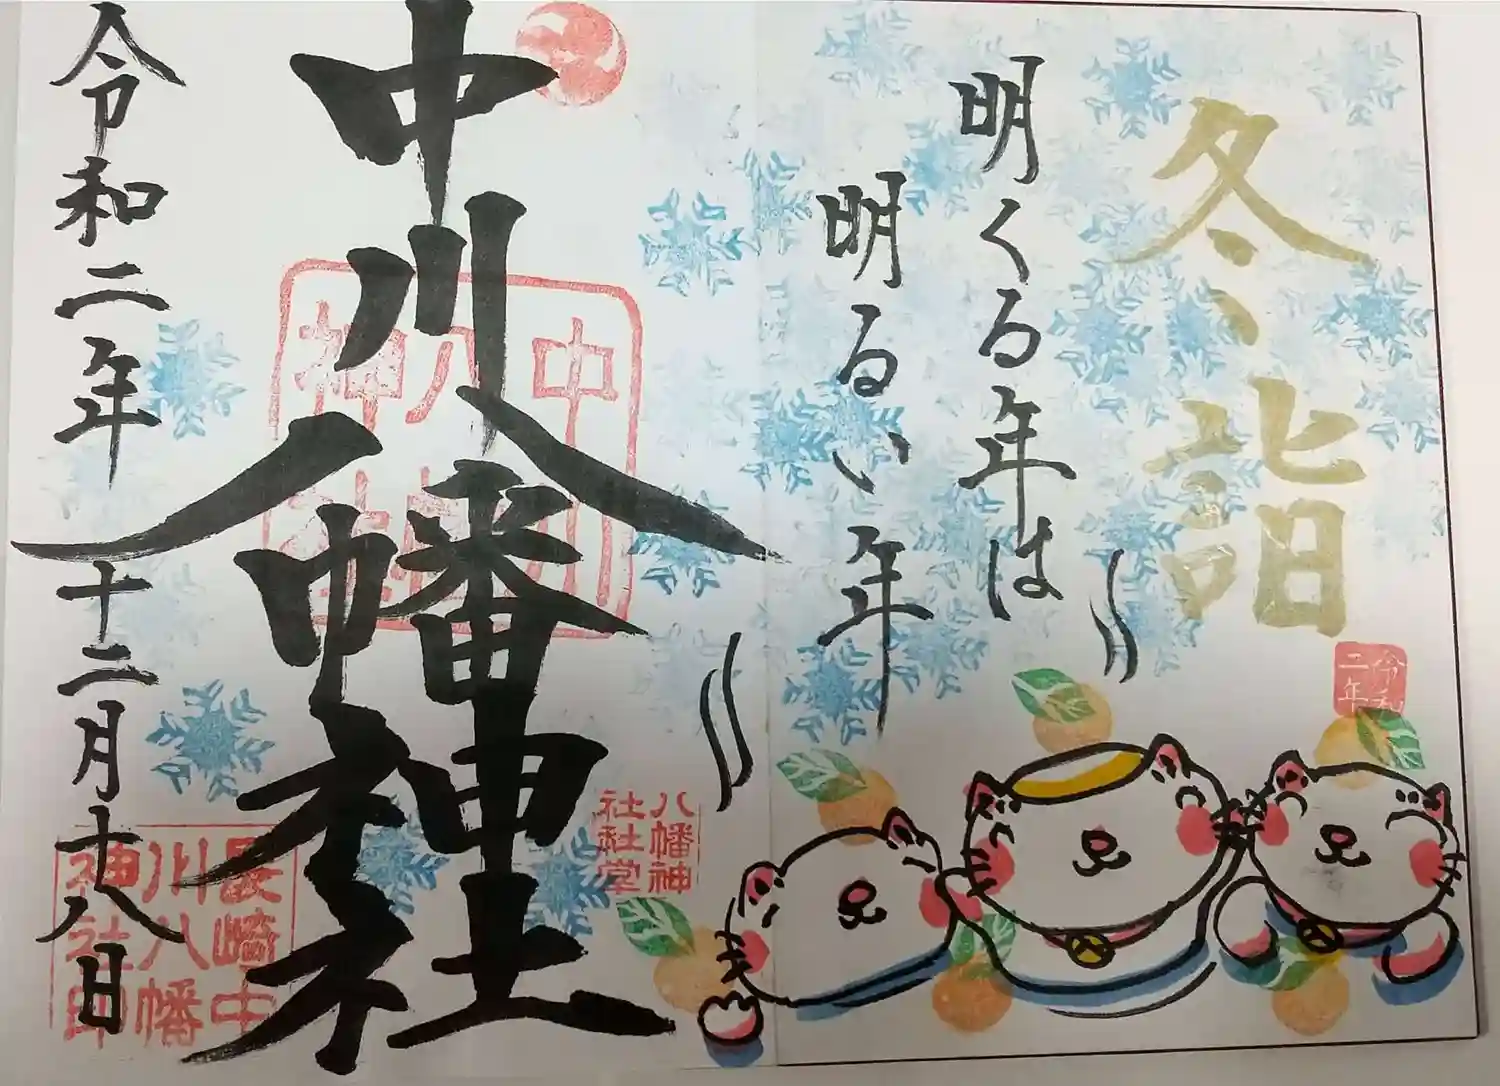 冬詣
明くる年は
明るい年
令和
二年
中川八幡神社
中川
八幡
神社
八幡神
社社堂
令和二年十二月十八日
長崎中
川八幡
神社印